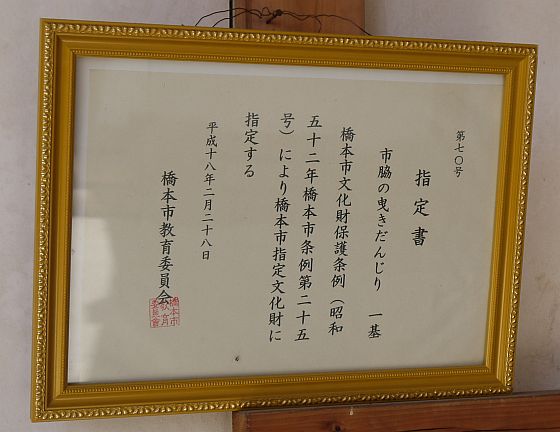 第七〇号
指定書
市脇の曳きだんじり 一基
橋本市文化財保護条例（昭和
五十二年橋本市条例第二十五
号）により橋本市指定文化財に
指定する
平成十八年二月二十八日
橋本市教育委員会
橋本市
教育
委員會